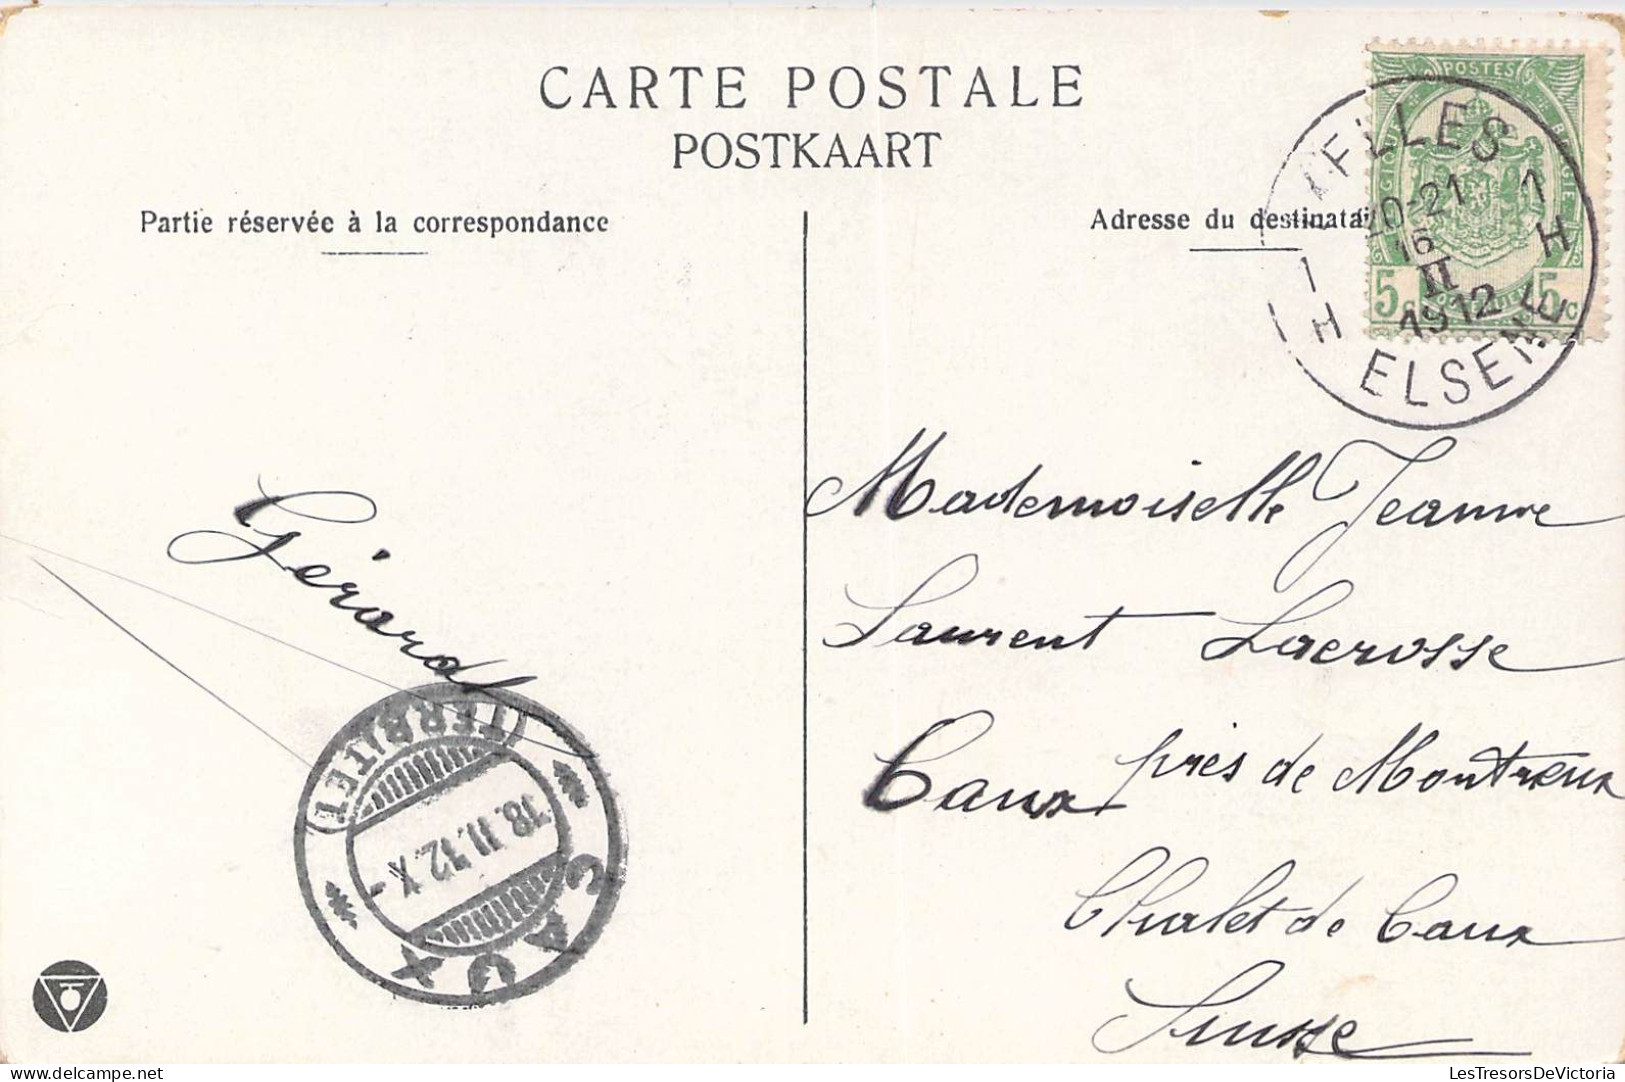 CARTE POSTALE
POSTKAART
Partie réservée à la correspondance
Adresse du destinatai
POSTES
5c 5c
ELLES
20-21
16
II
1912
1 H
1 H
ELSENE
Gérard
(TERRITET)
18.II.12.X-
CAUX
Mademoiselle Jeanne
Laurent Lacrosse
Caux près de Montreux
Chalet de Caux
Suisse
LesTresorsDeVictoria